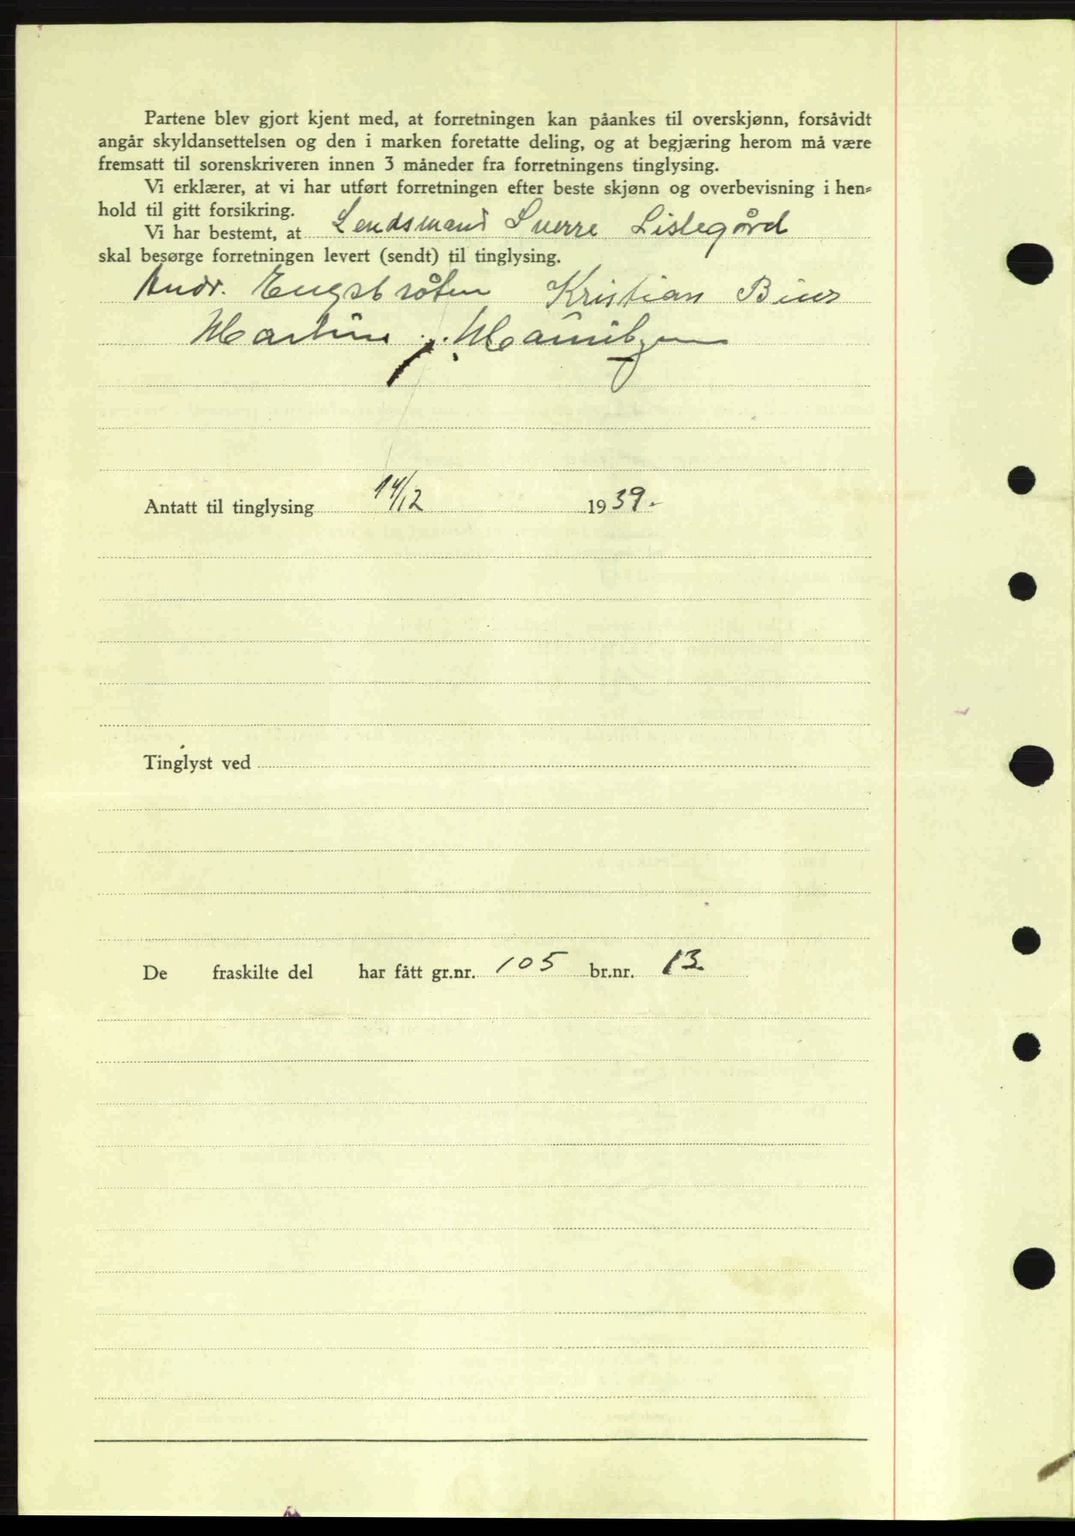 Partene blev gjort kjent med, at forretningen kan påankes til overskjønn, forsåvidt
angår skyldansettelsen og den i marken foretatte deling, og at begjæring herom må være
fremsatt til sorenskriveren innen 3 måneder fra forretningens tinglysing.
Vi erklærer, at vi har utført forretningen efter beste skjønn og overbevisning i hen=
hold til gitt forsikring.
Vi har bestemt, at Lendsmand Sverre Lislegård
skal besørge forretningen levert (sendt) til tinglysing.
Andr. Engebråten Kristian
Martin
Antatt til tinglysing 14/12 1939.
Tinglyst ved
De fraskilte del har fått gr.nr. 105 br.nr. 13